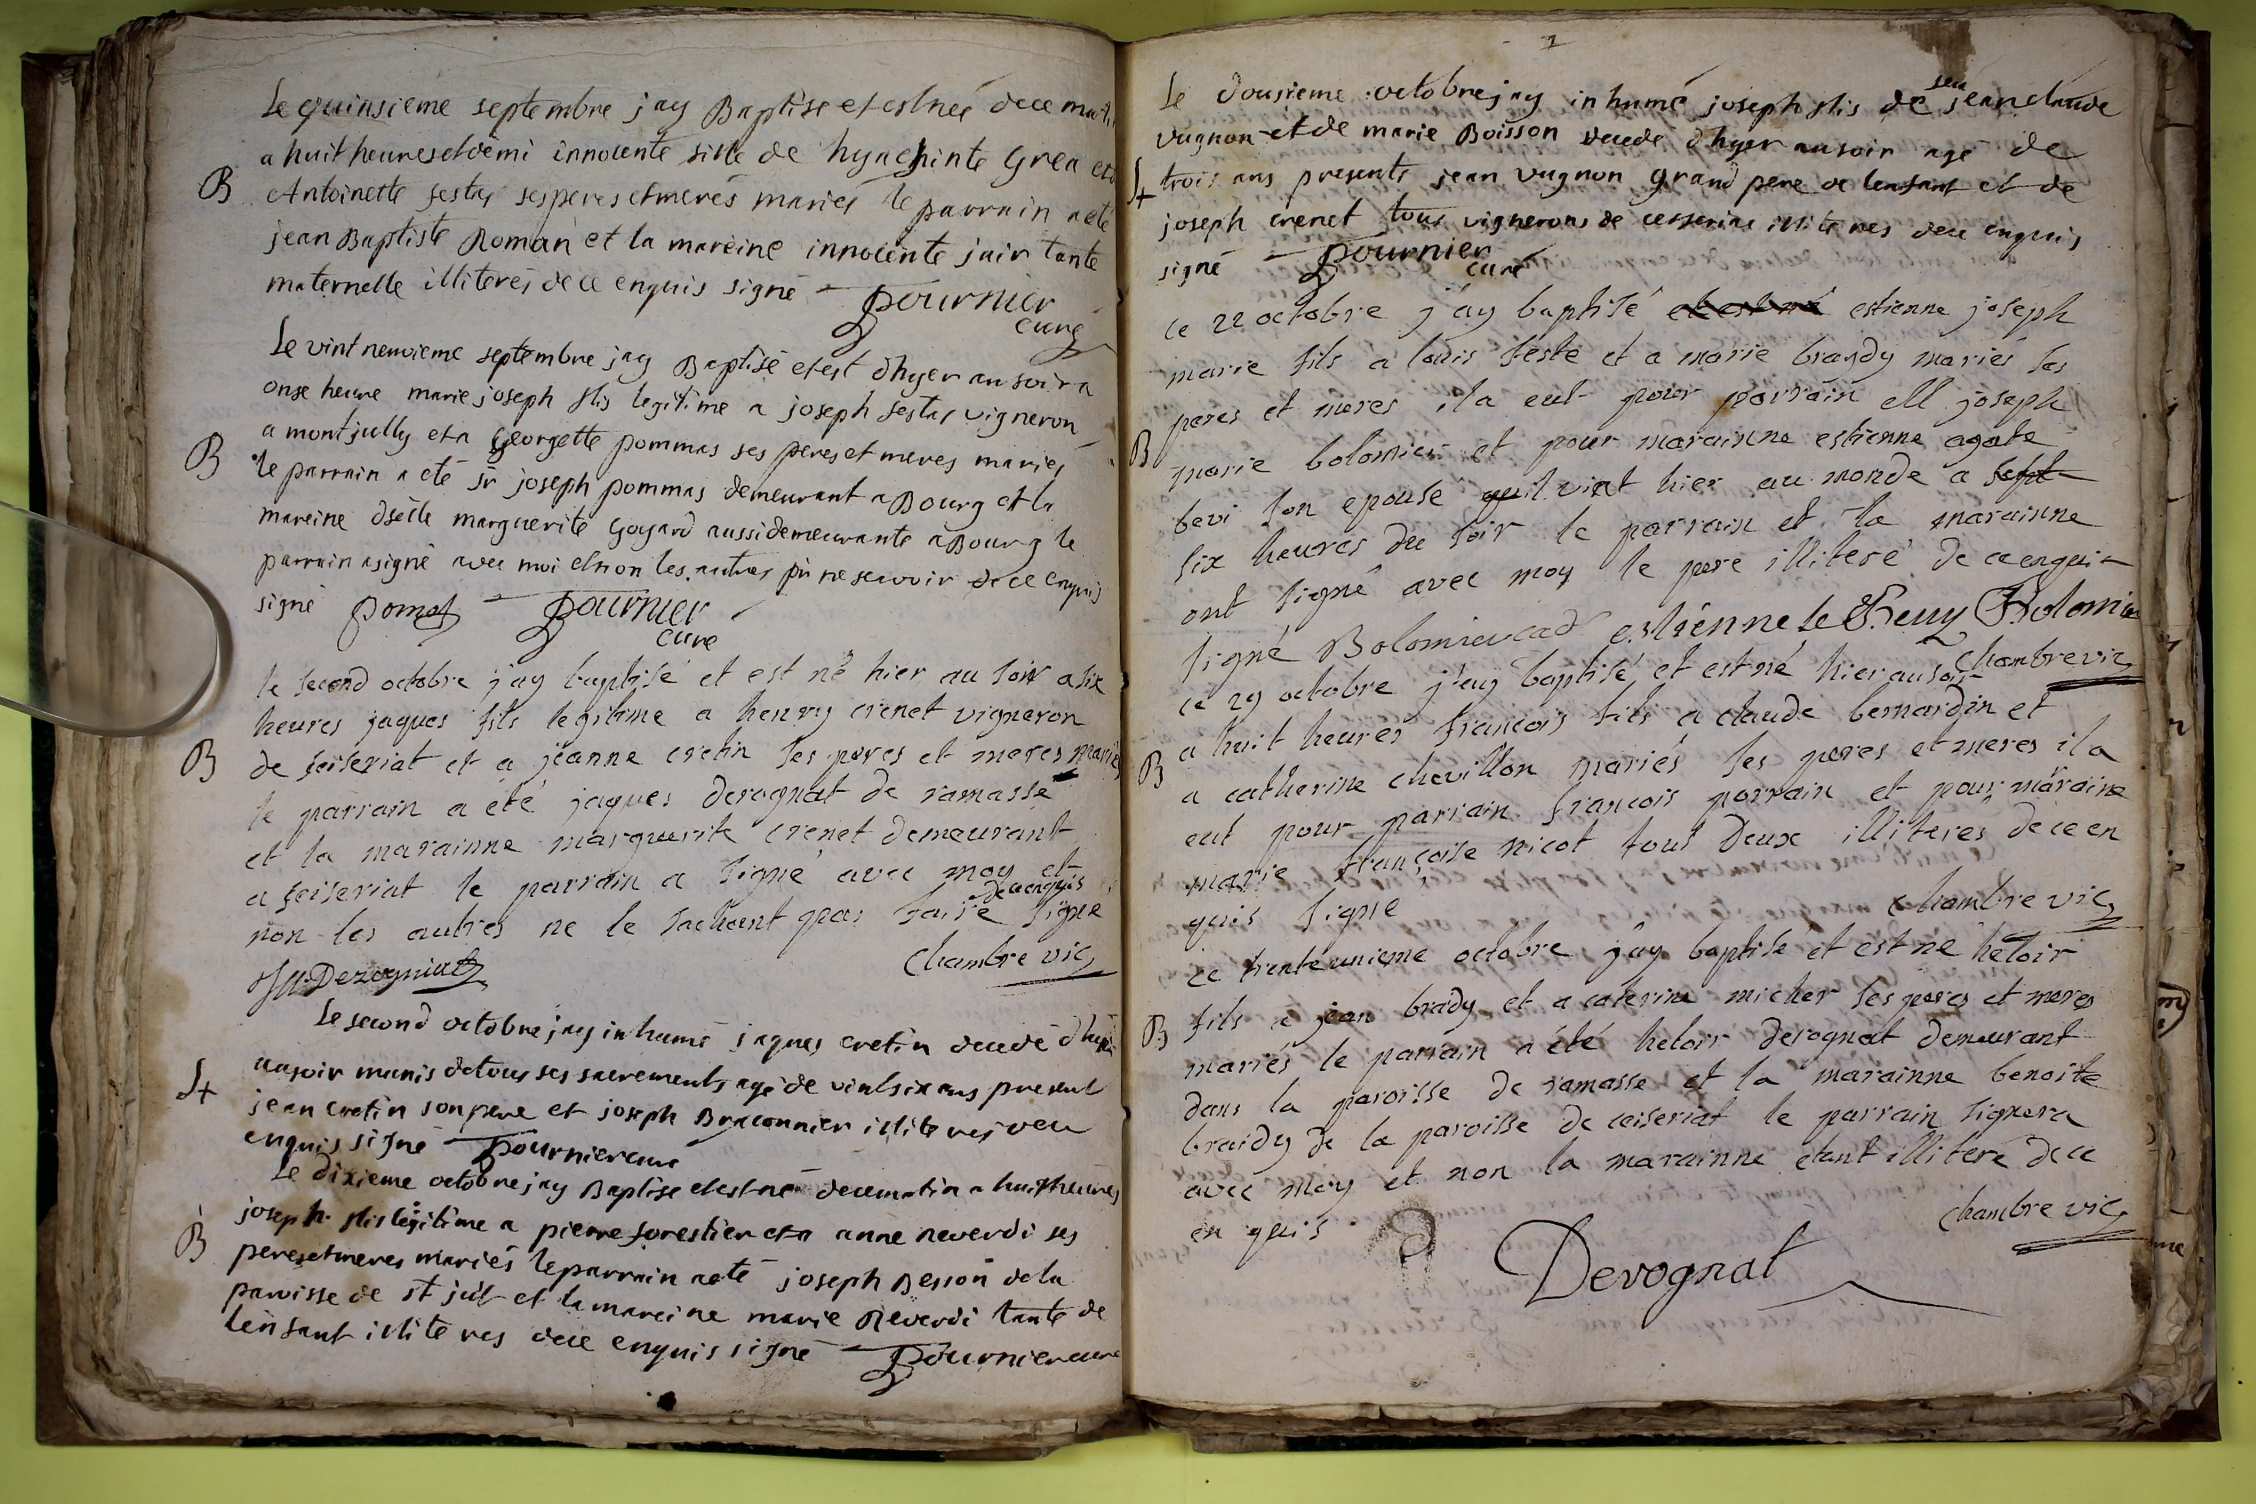 Le quinsieme septembre jay Baptise et est née dece matin
a huit heures et demi innocente fille de hyachinte Grea et
B
Antoinette festas ses peres et meres mariés le parrain a eté
jean Baptiste Roman et la mareine innocente jair tante
maternelle illiteres de ce enquis signé Fournier
curé
Le vint neuvieme septembre jay Baptisé et est dhyer au soir a
onse heure marie joseph fils legitime a joseph festas vigneron
a montjully et a Georgette pommas ses peres et meres mariés
B
le parrain a eté sr joseph pommas demeurant a Bourg et la
mareine dselle marguerite Goyard aussi demeurante a Bourg le
parrain a signé avec moi et non les autres pr ne scavoir de ce enquis
signé Pomas Fournier
curé
le second octobre j'ay baptisé et est né hier au soir a six
heures jaques fils legitime a henry crenet vigneron
B
de seiseriat et a jeanne cretin ses peres et meres mariés
le parrain a été jaques derognat de ramasse
et la marainne marguerite crenet demeurant
a seiseriat le parrain a signé avec moy et
de ce enquis
non les autres ne le sachant pas faire signé
Chambre vic
Dezogniat
Le second octobre jay inhumé jaques cretin decedé dhyer
au soir munis de tous ses sacrements agé de vint six ans present
St
jean cretin son pere et joseph Braconnier illiteres de ce
enquis signé Fournier curé
Le dixieme octobre jay Baptise et est né de ce matin a huit heures
joseph fils légitime a pierre forestier et a anne reverdi ses
B
peres et meres mariés le parrain a eté joseph Besson de la
paroisse de st just et la mareine marie Reverdi tante de
lenfant illiteres de ce enquis signé Fournier curé
1
Le dousieme octobre jay inhumé joseph fils de feu jean claude
vugnon et de marie Boisson decedé dhyer au soir agé de
St
trois ans presents jean vugnon grand pere de lenfant et de
joseph crenet tous vignerons de cesseria illiteres de ce enquis
signé Fournier
curé
ce 22 octobre j'ay baptisé et est né estienne joseph
marie fils a louis feste et a marie braydy mariés ses
peres et meres il a eut pour parrain joseph
B
marie bolomier et pour marainne estienne agate
bevi son epouse quil vint hier au monde a sept
six heures du soir le parrain et la marainne
ont signé avec moy le pere illiteré de ce enquis
signé Bolomier cad estienne le Beuy Bolomier
Chambre vic
ce 29 octobre j'ay baptisé et est né hier au soir
a huit heures francois fils a claude bernardin et
B
a catherine chevillon mariés ses peres et meres il a
eut pour parrain francois porrain et pour maraine
marie françoise nicot tout deux illiteres de ce en
quis signe
Chambre vic
ce trenteunieme octobre j'ay baptisé et est né heloir
fils a jean brady et a caterine micher ses peres et meres
B
mariés le parrain a été heloir derognat demeurant
dans la paroisse de ramasse et la marainne benoite
braidy de la paroisse de ceiseriat le parrain signera
avec moy et non la marainne etant illiteré de ce
en quis
Chambre vic
Derognat